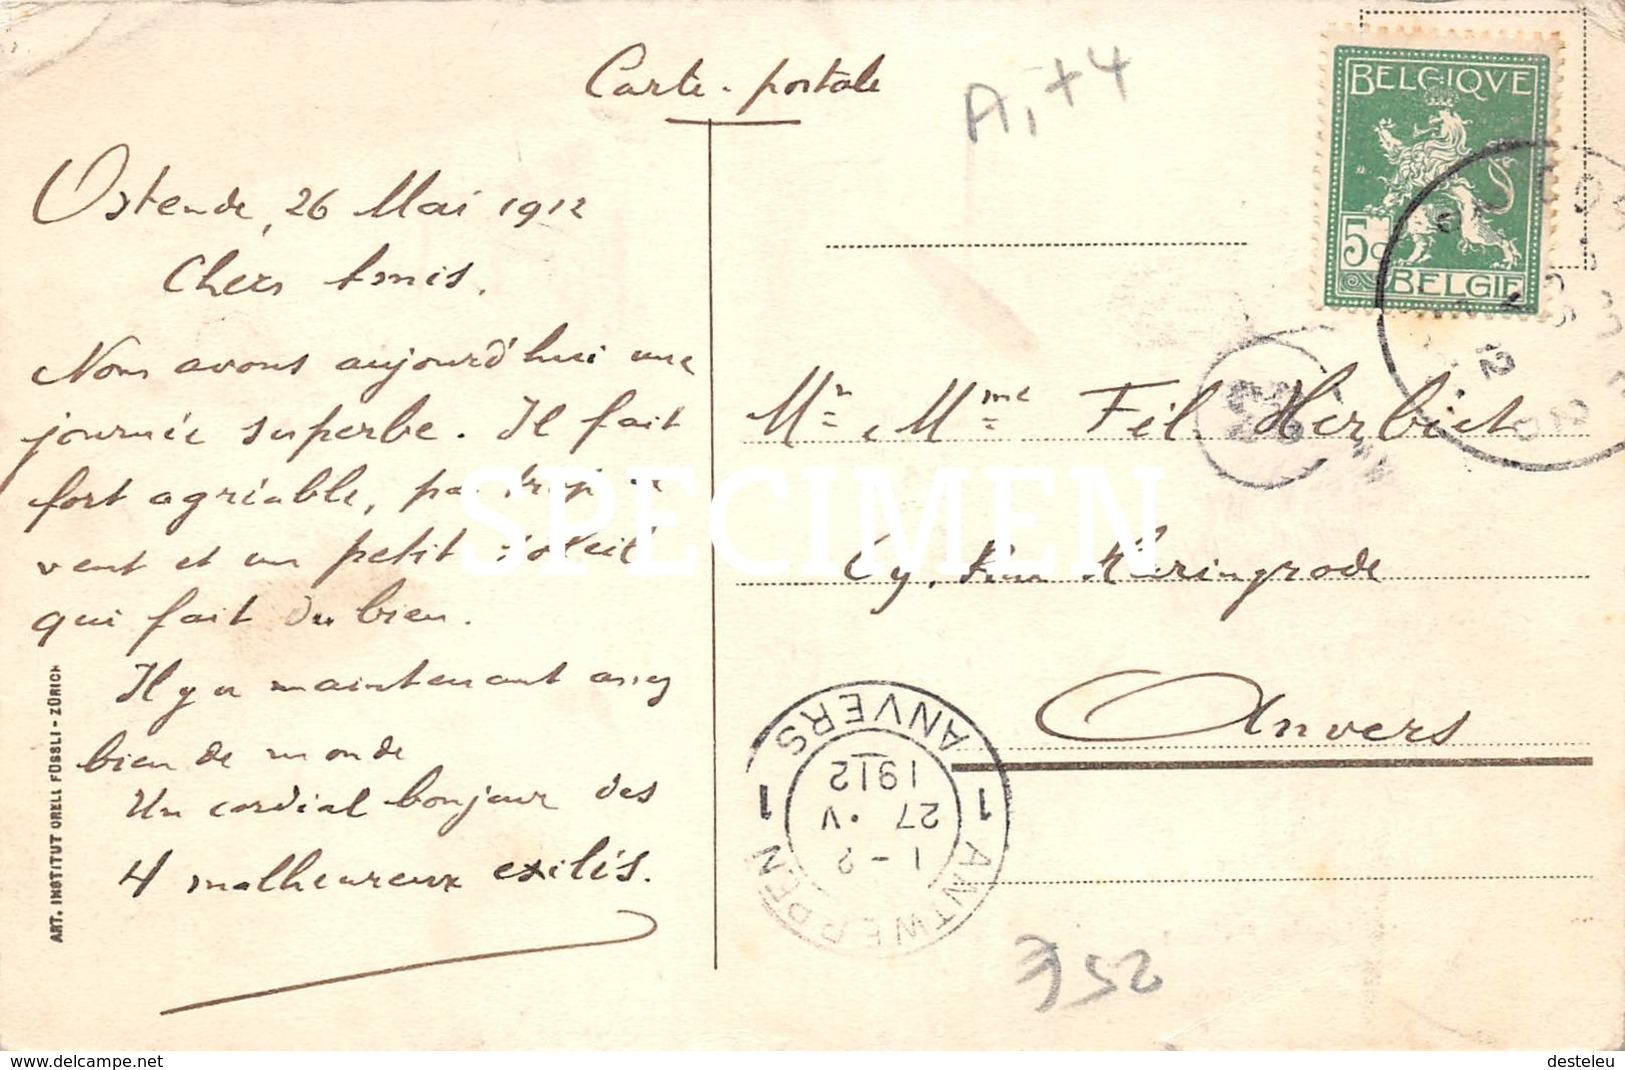 Carte-postale
A, + 4
BELGIQVE
5c
BELGIE
Ostende, 26 Mai 1912
Chers Amis.
Nous avons aujourd'hui une
journée superbe. Il fait
fort agréable, pas trop de
vent et un petit soleil
qui fait du bien.
Il y a maintenant assez
bien de monde
Un cordial bonjour des
4 malheureux exilés.
Mr & Mme Fél. Herbiet
Rue
Anvers
SPECIMEN
ANTWERPEN
1 ANVERS 1
1-2
27 . V
1912
12
€52
ART. INSTITUT ORELL FÜSSLI - ZÜRICH
www.delcampe.net
desteleu